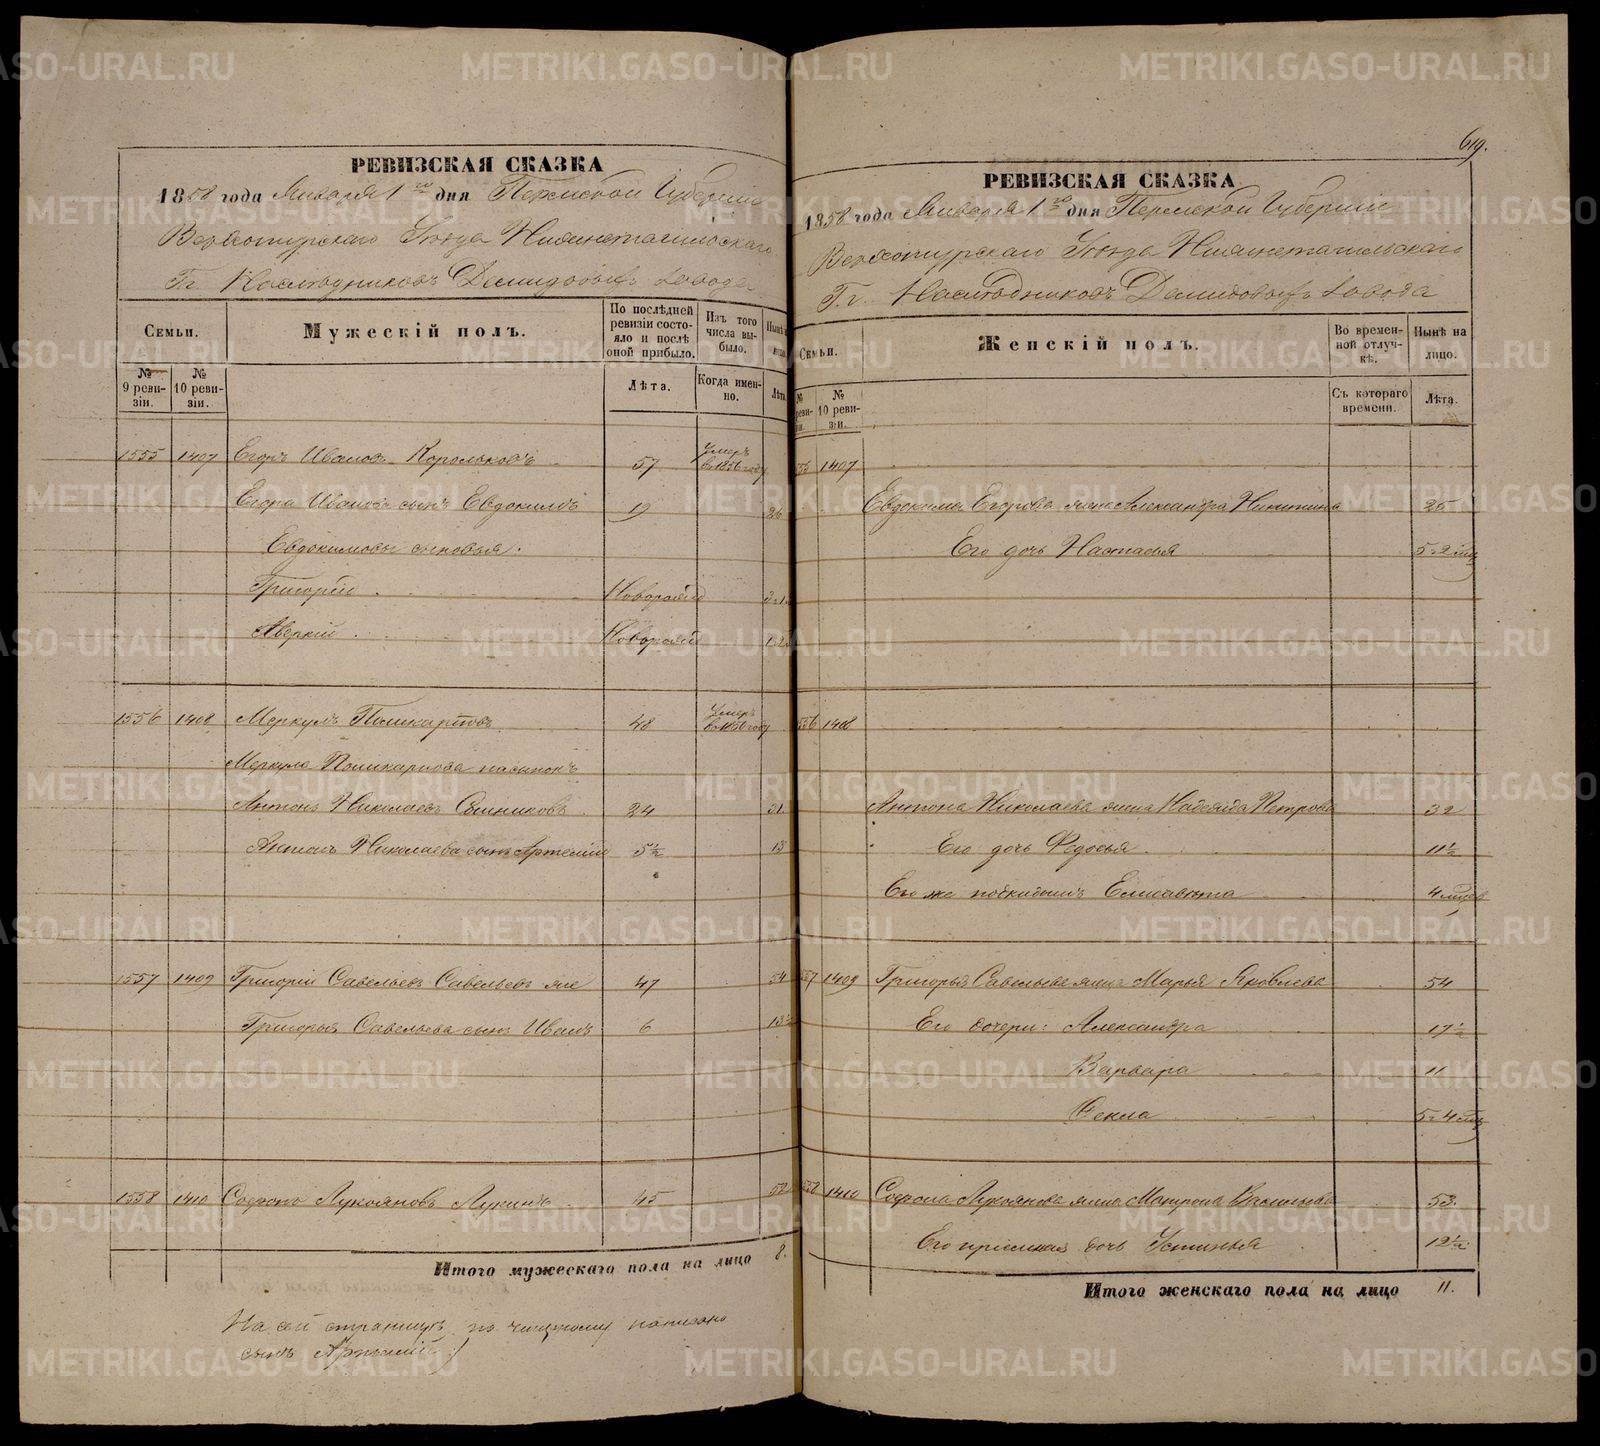 РЕВИЗСКАЯ СКАЗКА
1858 года Января 1го дня Пермской Губернiи
Верхотурскаго Уѣзда Нижнетагильскаго
Гг. Наслѣдниковъ Демидовыхъ завода
Семьи.
Мужескiй полъ.
По послѣдней ревизiи состояло и послѣ оной прибыло.
Изъ того числа выбыло.
№ 9 ревизiи.
№ 10 ревизiи.
Лѣта.
Когда именно.
Лѣта
1555 1407 Егоръ Ивановъ Корольковъ 57 Умеръ въ 1856 году
Егора Иванова сынъ Евдокимъ 19 26
Евдокимовы сыновья:
Григорiй Новорожд
Аверкiй Новорожд
1556 1408 Меркулъ Поликарповъ 48 Умеръ въ 1850 году
Меркула Поликарпова пасынокъ
Антонъ Николаевъ 24 31
Антона Николаева сынъ Артемiй 5½ 13
1557 1409 Григорiй Савельевъ Савельевъ же 47 54
Григорья Савельева сынъ Иванъ 6 13½
1558 1410 Софронъ Лукояновъ Лукинъ 45 52
Итого мужескаго пола на лицо 8.
На сей страницѣ по чищеному написано
сынъ Артемiй
619.
РЕВИЗСКАЯ СКАЗКА
1858 года Января 1го дня Пермской Губернiи
Верхотурскаго Уѣзда Нижнетагильскаго
Гг. Наслѣдниковъ Демидовыхъ завода
Семьи.
Женскiй полъ.
Во временной отлучкѣ.
Нынѣ на лицо.
№ 10 ревизiи.
Съ котораго времени.
Лѣта.
1407
Евдокима Егорова жена Александра Никитина 25
Его дочь Настасья 5. 2 мц
1408
Антона Николаева жена Надежда Петрова 32
Его дочь Федосья 11½
Его же подкидышъ Елисавета 4 мцов
1409 Григорья Савельева жена Марья Яковлева 54
Его дочери: Александра 17½
Варвара 11
Фекла 5. 4 мц
1410 Софрона Лукоянова жена Матрона Васильева 53.
Его прiемная дочь Устинья 12½
Итого женскаго пола на лицо 11.
METRIKI.GASO-URAL.RU